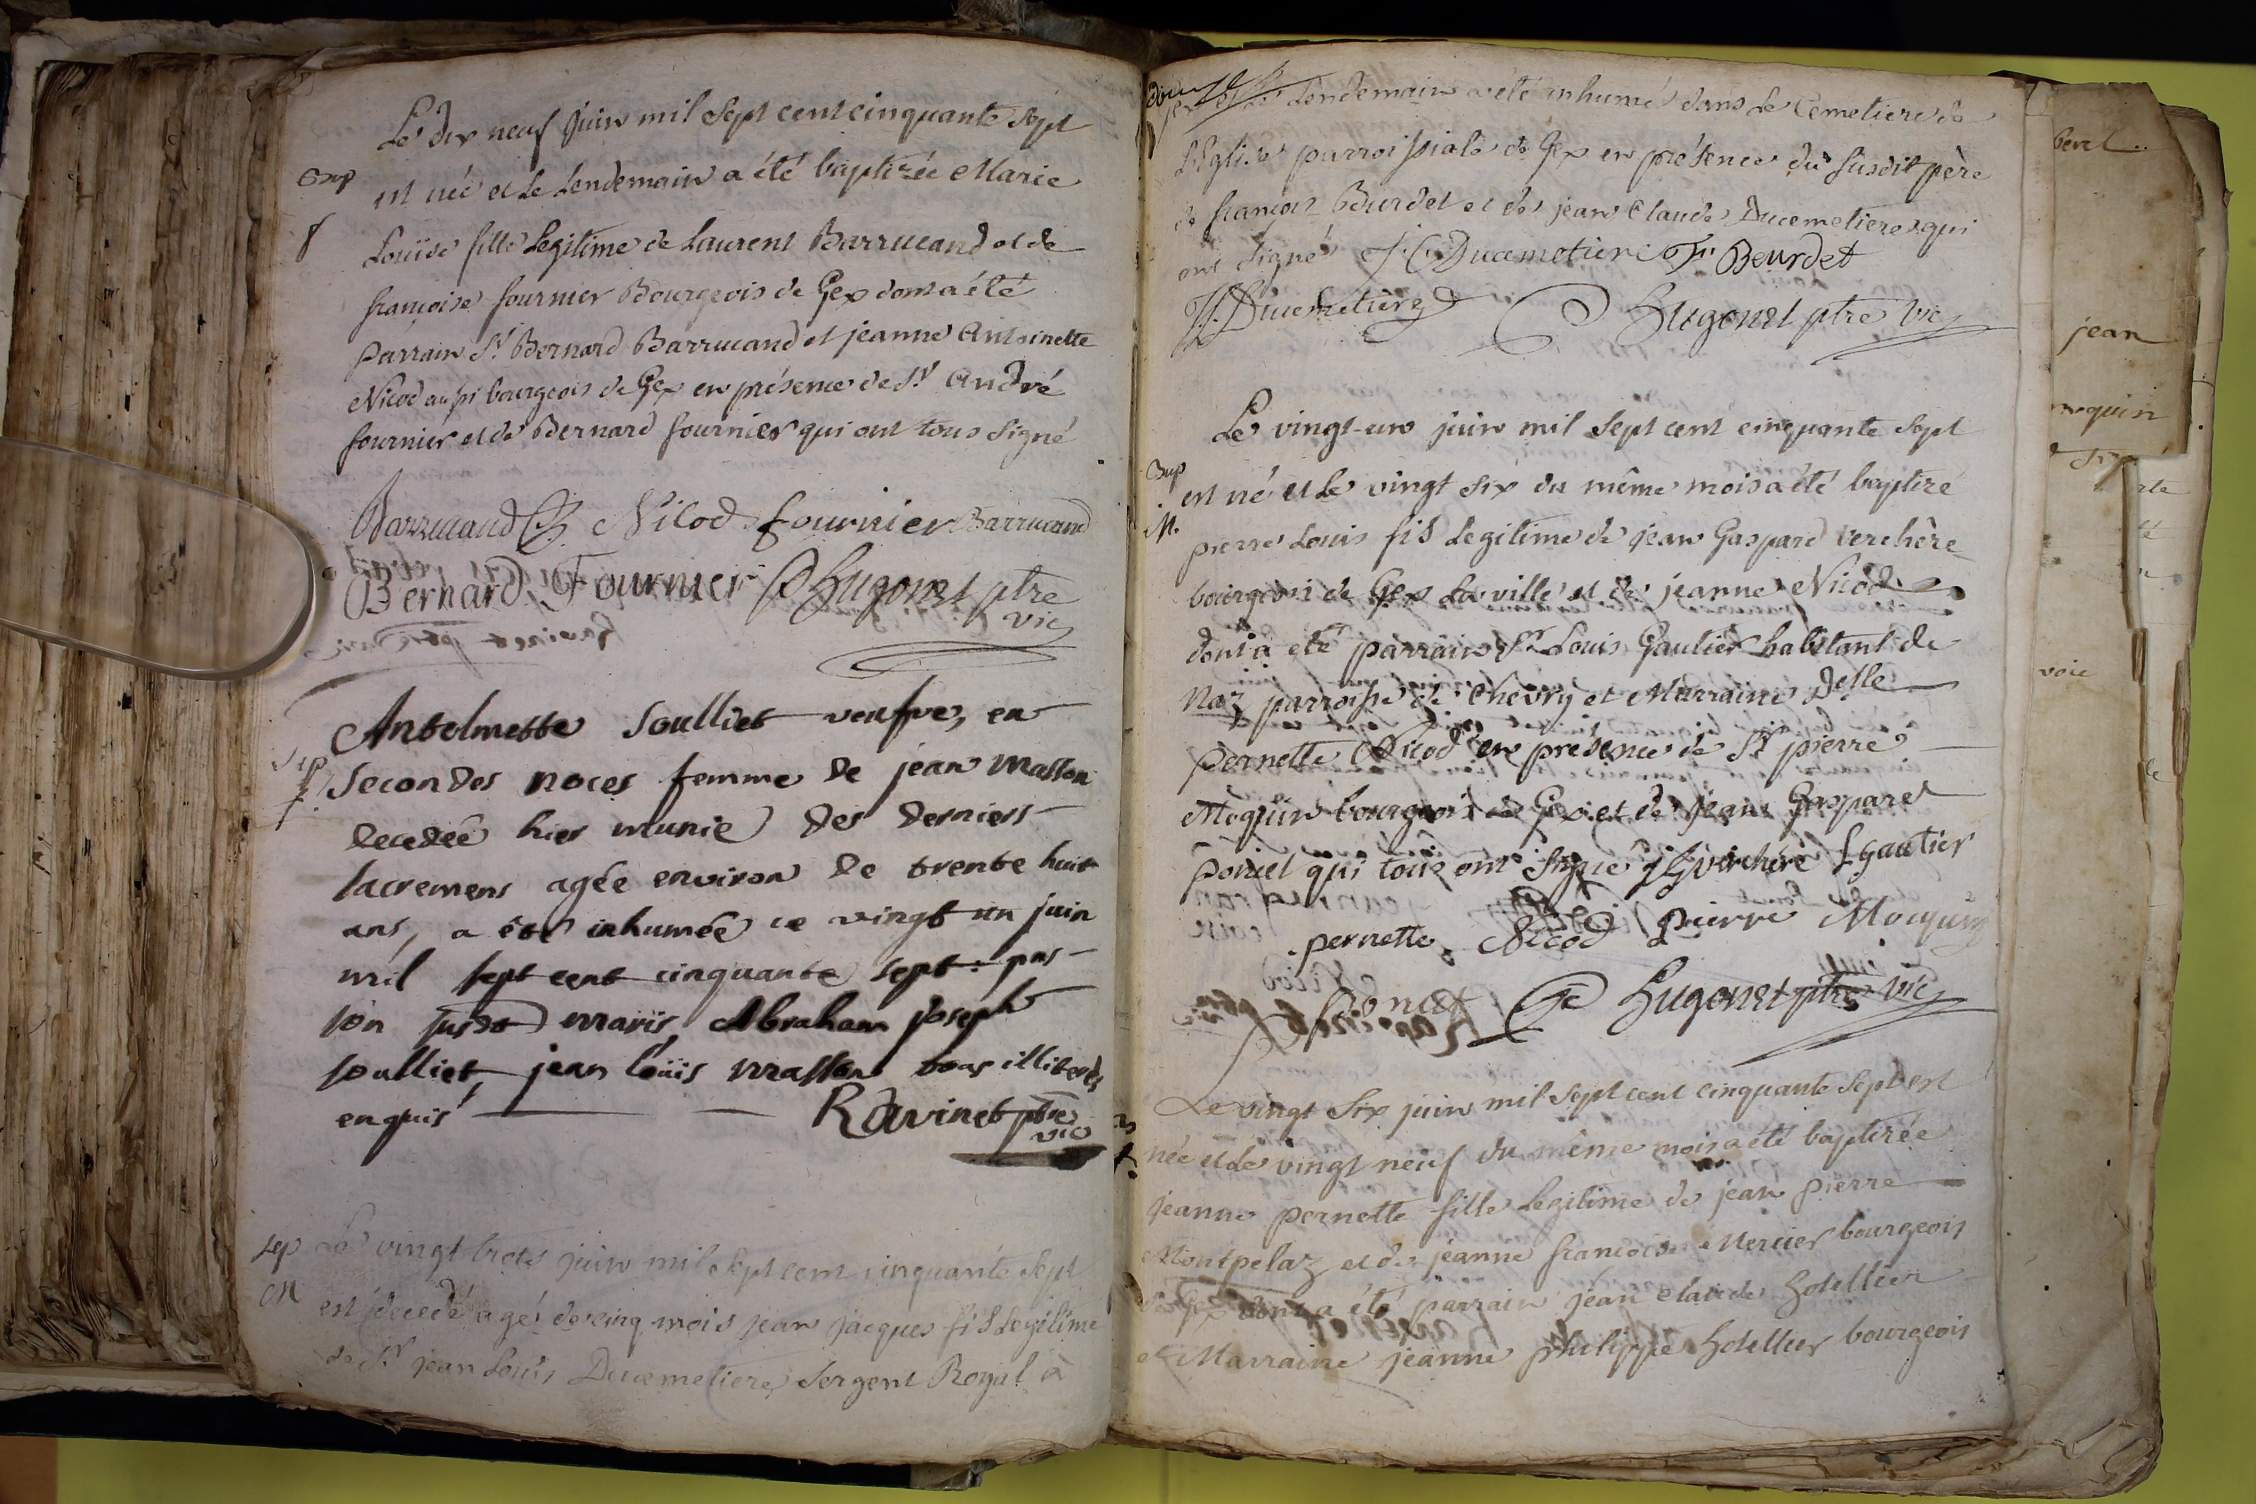 Le dix neuf juin mil sept cent cinquante sept
Bap
est née et le lendemain a été baptizée Marie
f
Louïse fille legitime de Laurent Barrucand et de
françoise fournier Bourgeois de Gex dont a été
parrain Sr Bernard Barrucand et jeanne Antoinette
Nicod aussi bourgeois de Gex en présence de Sr André
fournier et de Bernard fournier qui ont tous signé
Barrucand Nicod fournier Barrucand
Bernard Fournier Hugonet ptre
vic
Antelmette Soulliet veufve, en
Sep
secondes noces femme de jean Masson
f.
decedée hier munie des derniers
sacremens agée environ de trente huit
ans, a été inhumée ce vingt un juin
mil sept cent cinquante sept: pns
son susdt maris, Abraham joseph
soulliet, jean loüis Masson tous illiterés
enquis Ravinet ptre
vic
sep Le vingt trois juin mil sept cent cinquante sept
M
est decedé agé de cinq mois jean jacques fils legitime
de Sr jean Louïs Ducemetiere, sergent Royal à
Gex et le lendemain a été inhumé dans le Cemetiere de
l'Eglise parroissiale de Gex en présence du susdit père
de françois Bourdet et de jean Claude Ducemetiere qui
ont signé J: C Ducemetiere Fr Beurdet
J L Ducemetiere Hugonet ptre vic
Le vingt-un juin mil sept cent cinquante sept
Bap
est né et le vingt six du même mois a été baptizé
M.
pierre Louis fils legitime de jean Gaspard verchère
bourgeois de Gex la ville et de jeanne Nicod
dont a été parrain Sr Louis Gautier habitant de
Naz parroisse de Chevry et Marraine Delle
pernette Nicod en présence de Sr pierre
Moquin bourgeois de Gex et de jean Gaspard
poncet qui tous ont signé J G verchére L gautier
pernette Nicod pierre Moquin
poncet Hugonet ptre vic
Le vingt six juin mil sept cent cinquante sept est
née et le vingt neuf du même mois a été baptizée
f.
jeanne pernette fille legitime de jean pierre
Montpelaz et de jeanne françoise Mercier bourgeois
de Gex dont a été parrain jean claude hotellier
et Marraine jeanne philippe hotellier bourgeois
beret
jean
moquin
voic